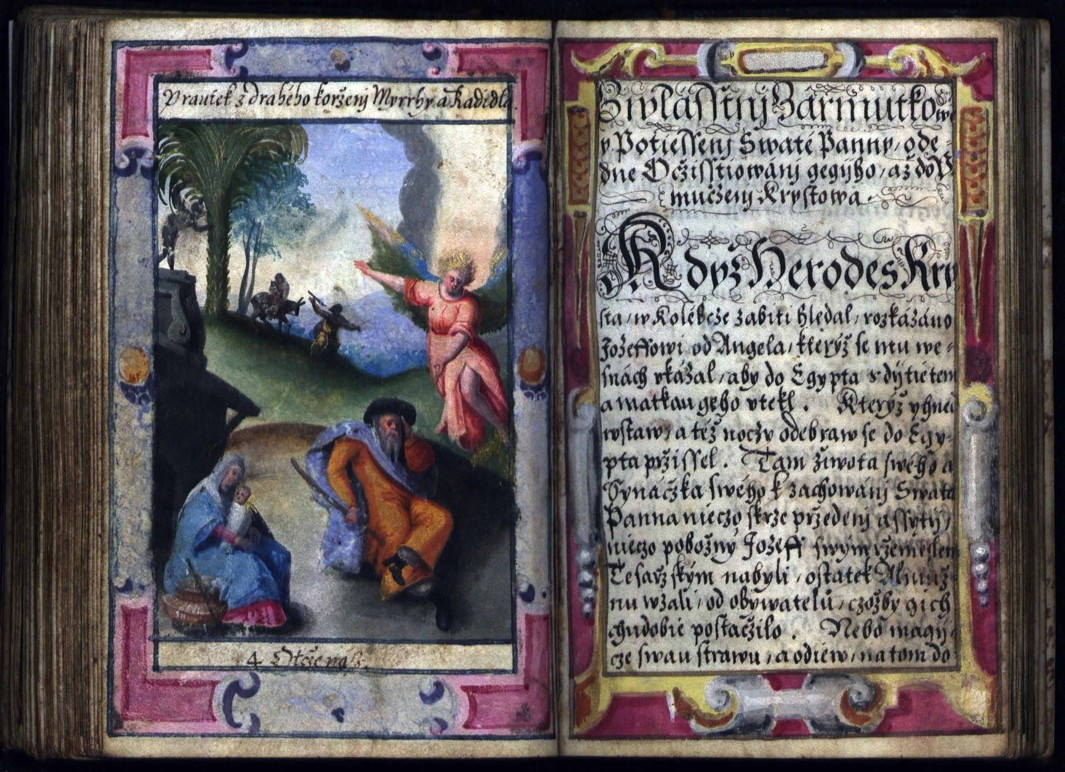 Vrautek z drahého koržený Myrrhy a Kadidla.
4 Otčenaš.
Zwlásstný Zármutkowé
y Potiessený Swaté Panny, ode
dne Očzisstiowáný gegýho, až do V
mučzený Krystowa.
Když Herodes Kry
sta, w Kolébcze zabiti hledal, rozkázáno
Jozeffowi od Angela, kterýž se mu we
snách vkázal, aby do Egypta s dýtietem
a matkau geho vtekl. Kterýž yhned
wstaw, a též noczy odebraw se do Egy-
pta pržissel. Tam života swého a
Synáčzka swého k zachowáný Swatá
Panna nieczo skrze pržedený a ssytý,
nieczo pobožný Jozeff swým ržemeslem
Tesaržským nabyli, ostatek Almuž
nu wzali, od obywatelů, czožby gich
chudobie postačzilo. Nebo magý
cze swau strawu, a odiew, na tom do